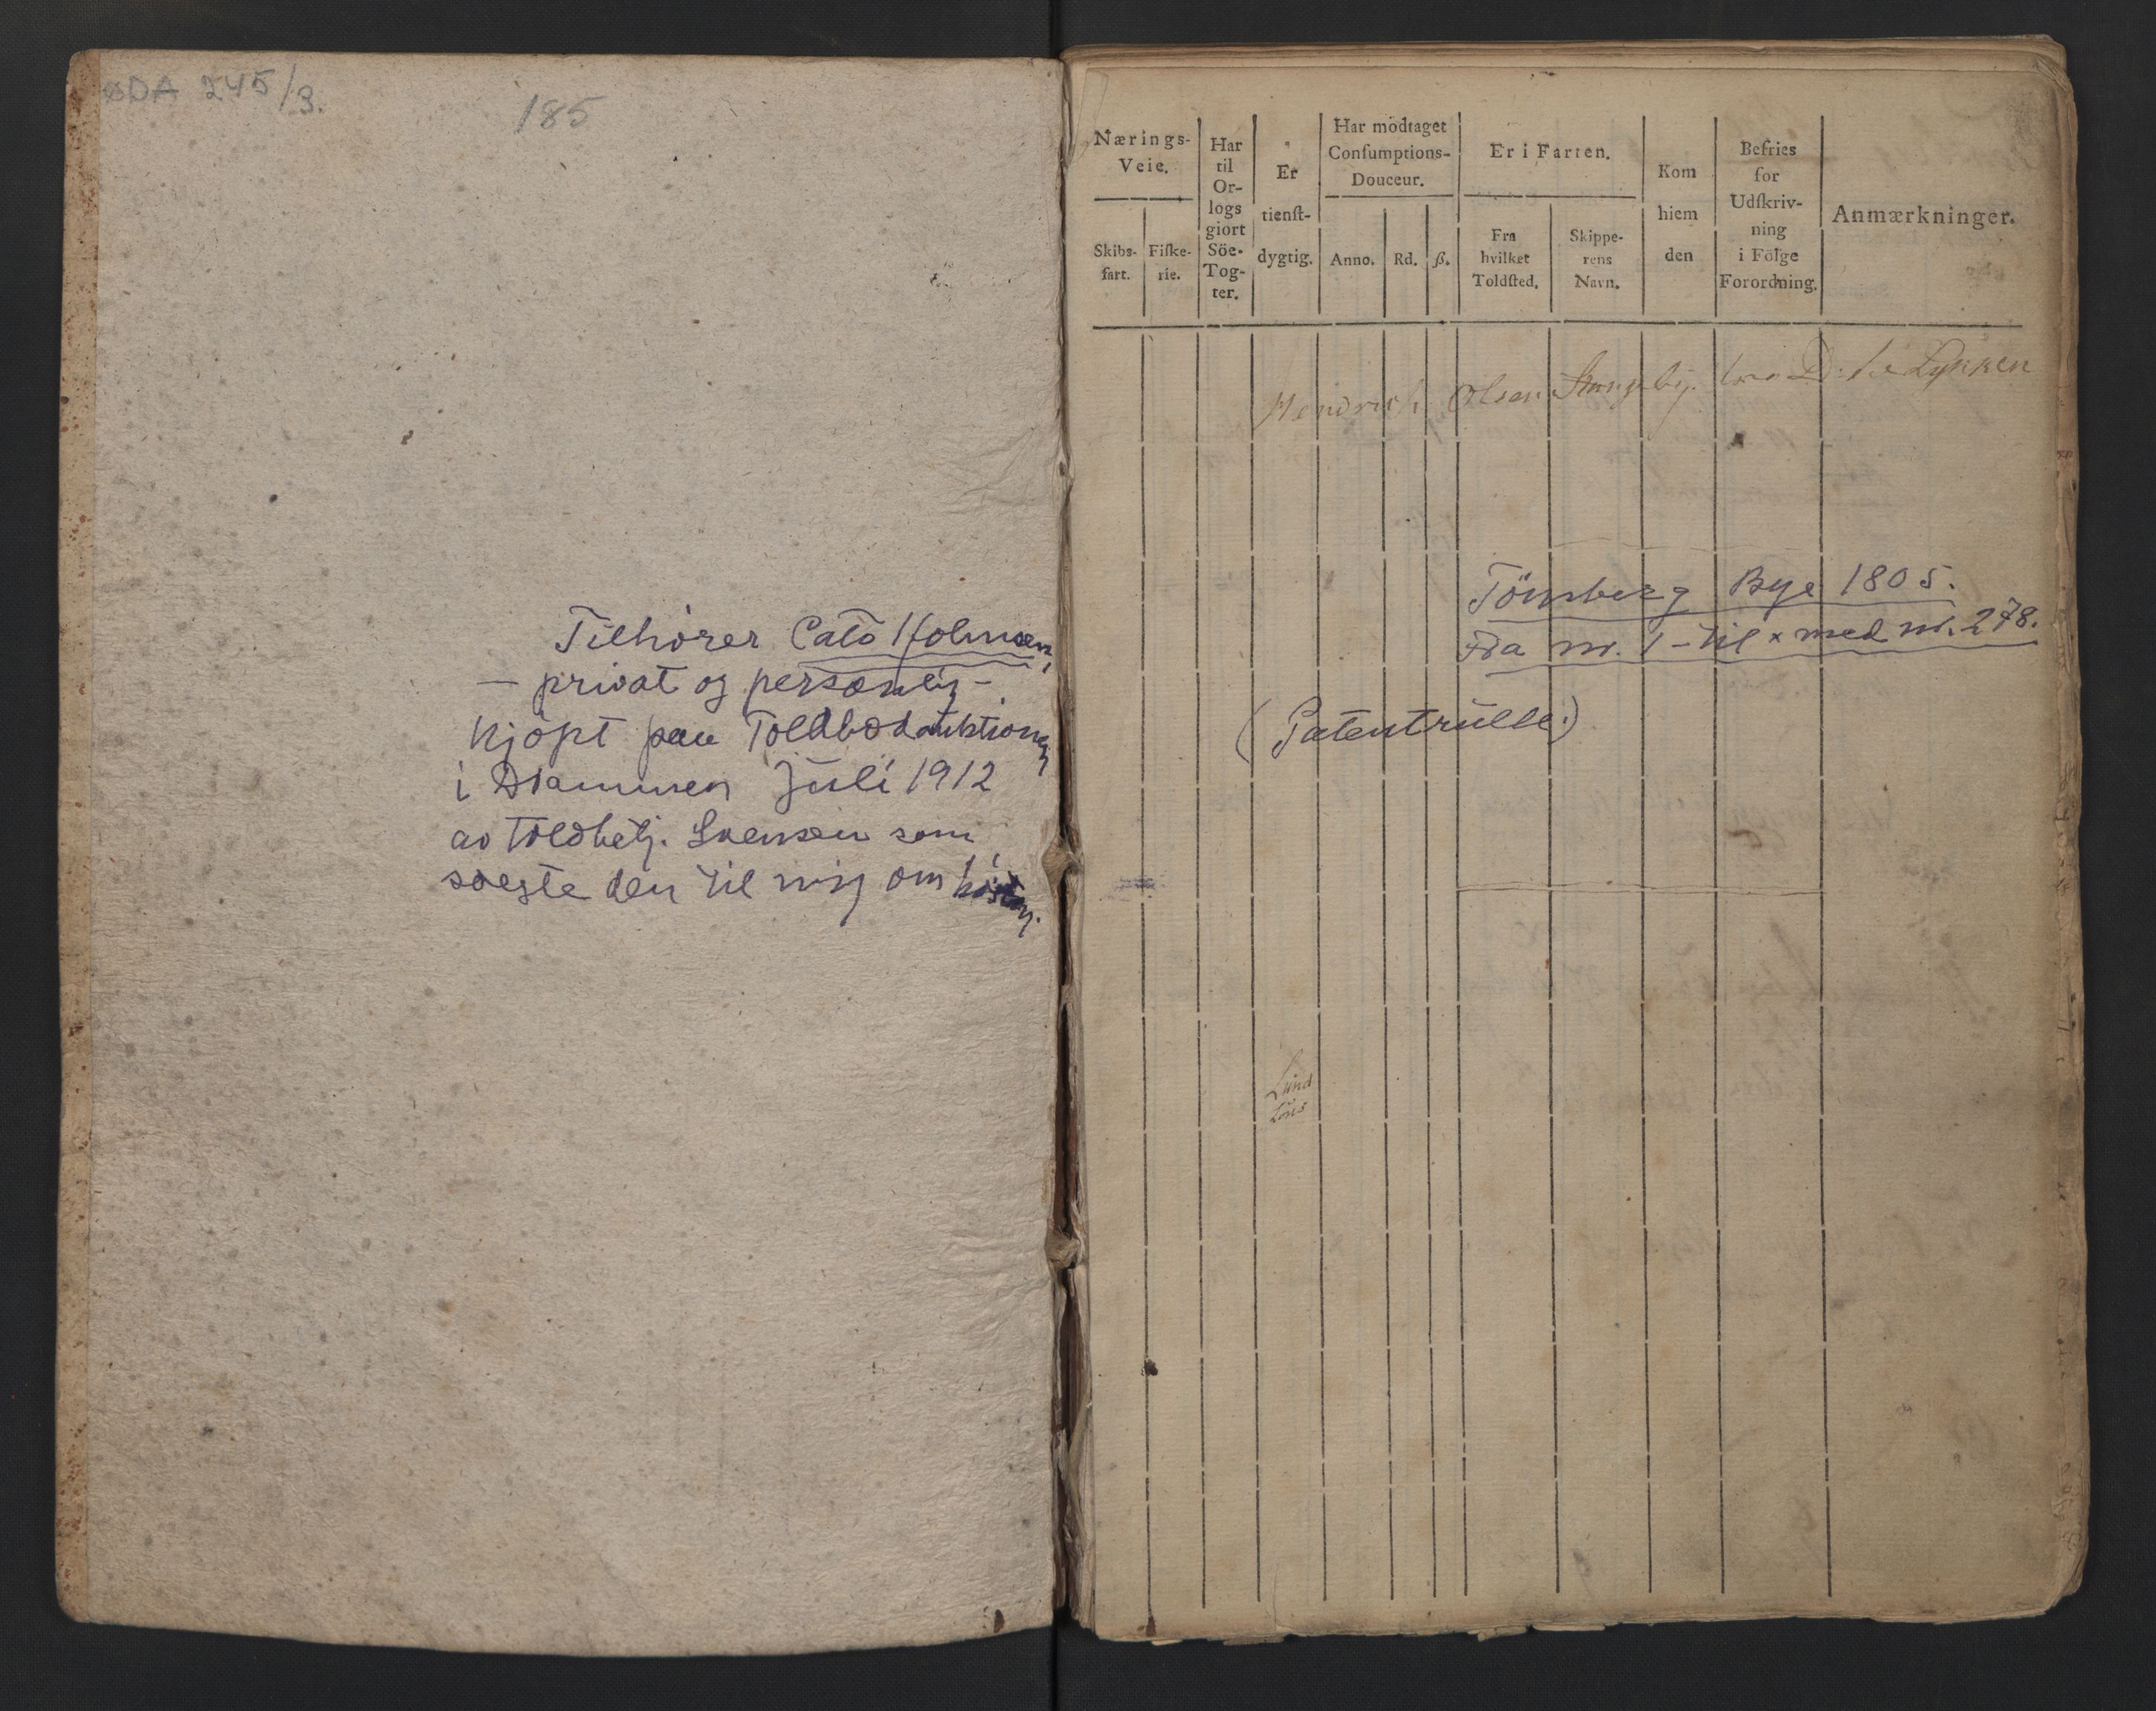 ØDA 245/3.
185
Tilhörer Cato Holmsen,
– privat og personlig –
Kjöpt paa Toldbodauktionen
i Drammen Juli 1912
av toldbetj. Svensen som
solgte den til mig om hösten.
Nærings-Veie.
Skibs-fart.
Fiske-rie.
Har til Or-logs giort Söe-Tog-ter.
Er tienst-dygtig.
Har modtaget Consumptions-Douceur.
Anno.
Rd.
ß.
Er i Farten.
Fra hvilket Toldsted.
Skippe-rens Navn.
Kom hiem den
Befries for Udskriv-ning i Fölge Forordning.
Anmærkninger.
Hendrich Olsen Lykken
Tönsberg Bye 1805.
Fra nr. 1 – til × med nr. 278.
(Patentrulle.)
Lund